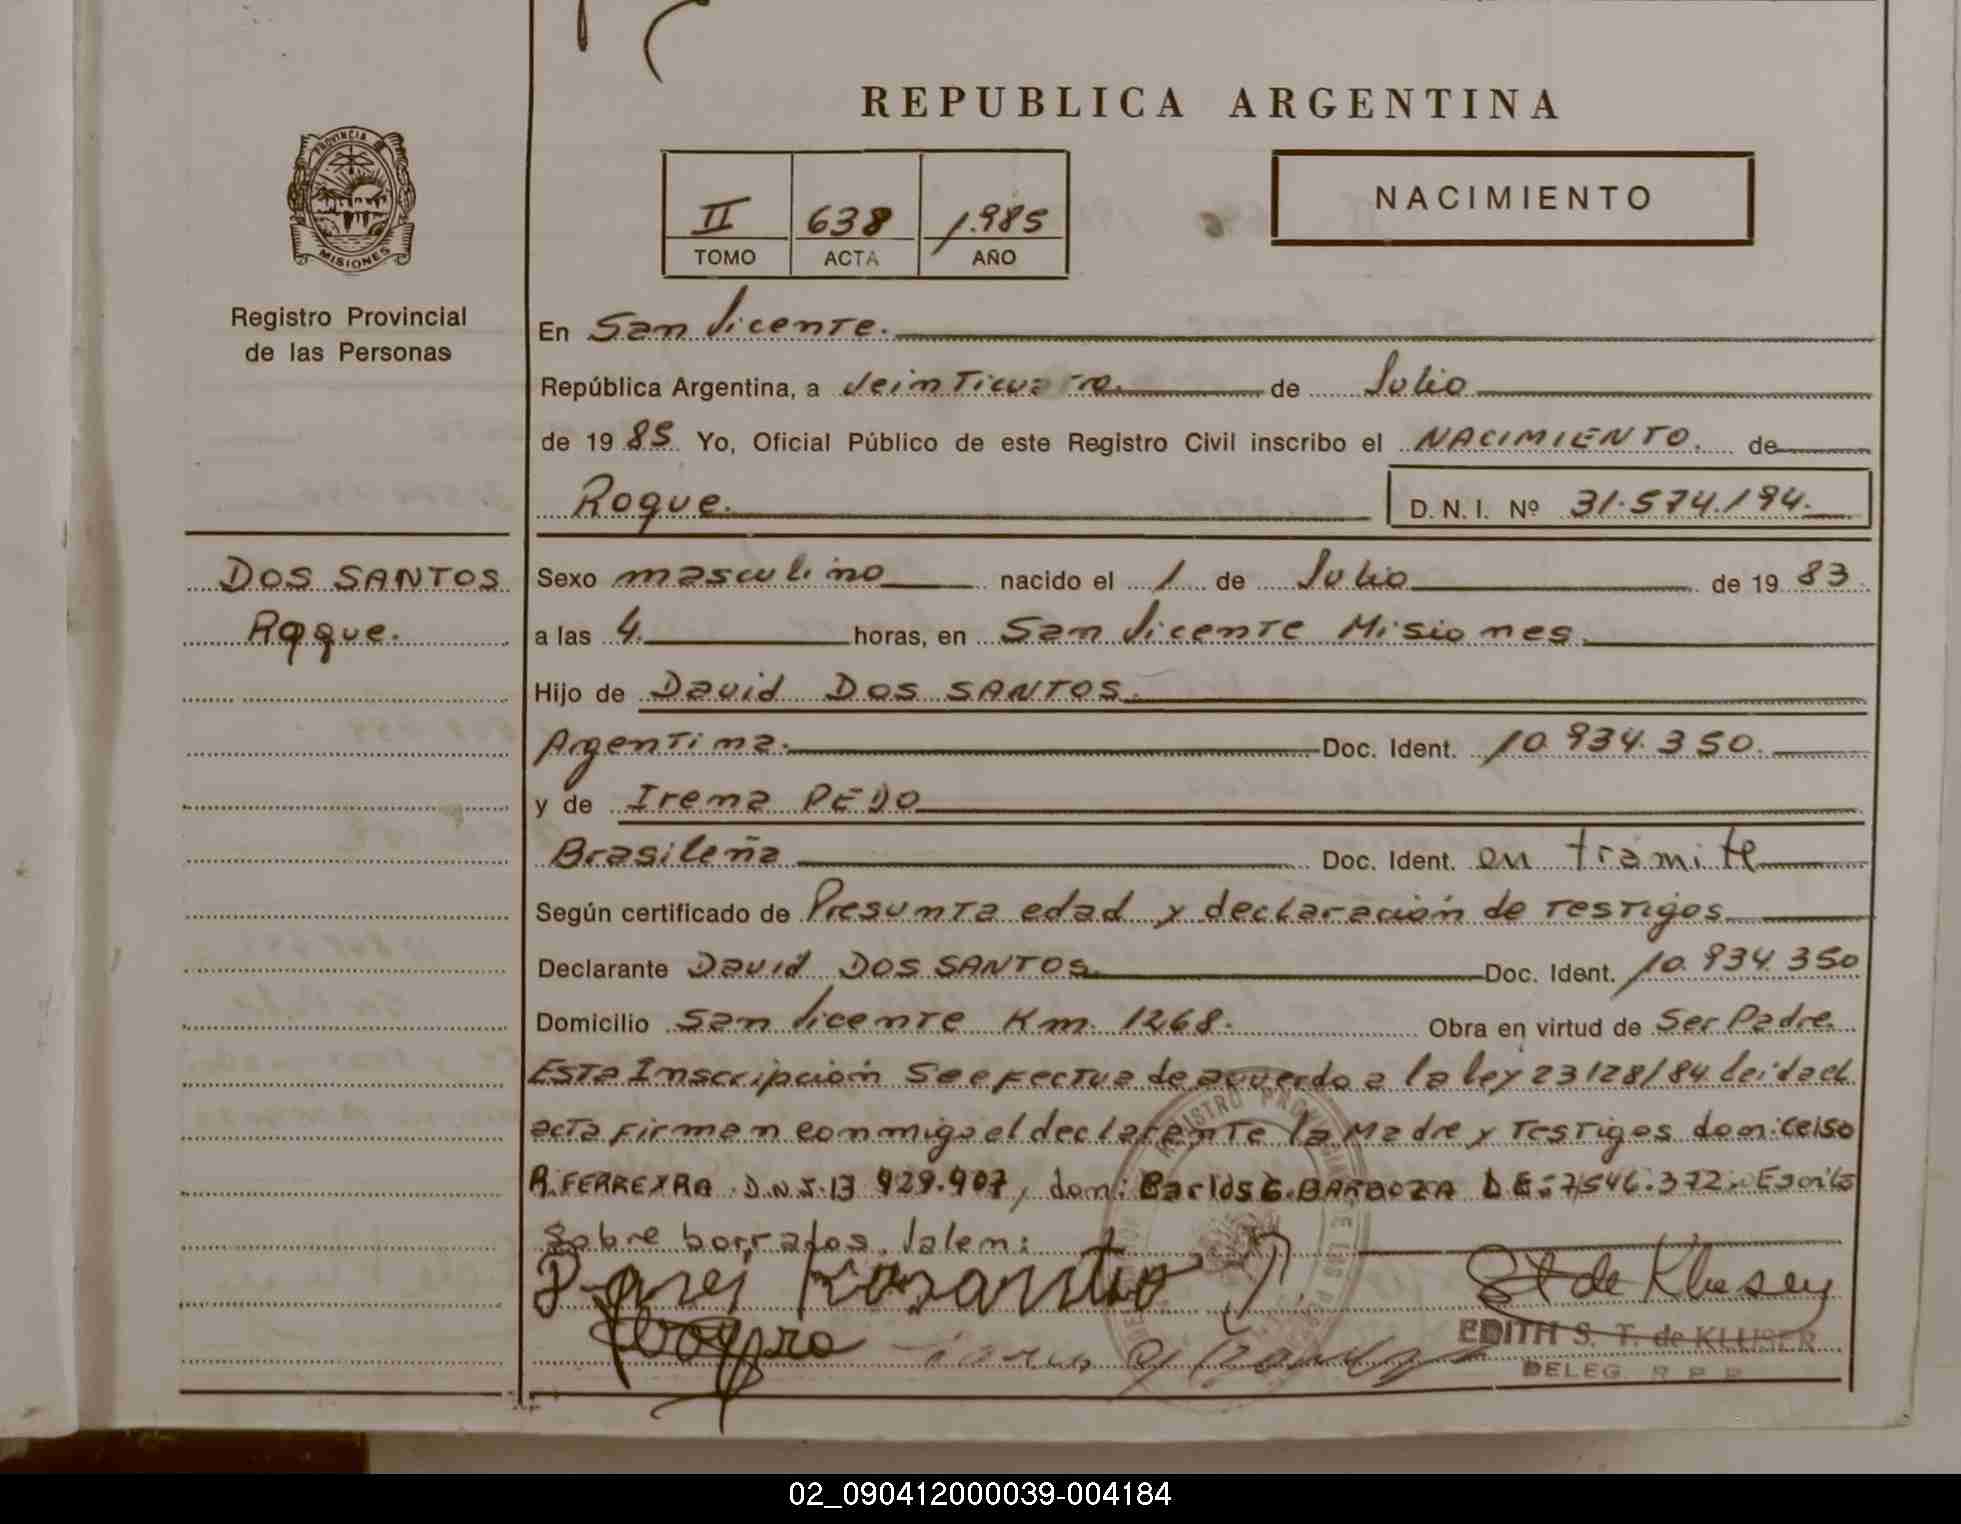 REPUBLICA ARGENTINA
PROVINCIA
MISIONES
Registro Provincial
de las Personas
II 638 1.985
TOMO ACTA AÑO
NACIMIENTO
En San Vicente.
República Argentina, a Veinticuatro. de Julio
de 19 85 Yo, Oficial Público de este Registro Civil inscribo el NACIMIENTO. de
Roque. D. N. I. Nº 31.574.194.
DOS SANTOS
Roque.
Sexo masculino nacido el 1 de Julio de 19 83
a las 4. horas, en San Vicente Misiones.
Hijo de David DOS SANTOS.
Argentina. Doc. Ident. 10.934.350.
y de Irema PEDO
Brasileña Doc. Ident. en tramite
Según certificado de Presunta edad y declaración de testigos
Declarante David DOS SANTOS. Doc. Ident. 10.934.350
Domicilio San Vicente Km. 1268. Obra en virtud de Ser Padre.
Esta Inscripción Se efectua de acuerdo a la ley 23128/84 leida el
acta firman conmigo el declarante la Madre y Testigos dom:
A. FERREYRA D.N.I. 13 929.907, dom: Carlos G. BARBOZA 7546.372. Escrito
Sobre borrados. Valen:
EDITH S. T. de KLUSER
DELEG. R P P
02_090412000039-004184